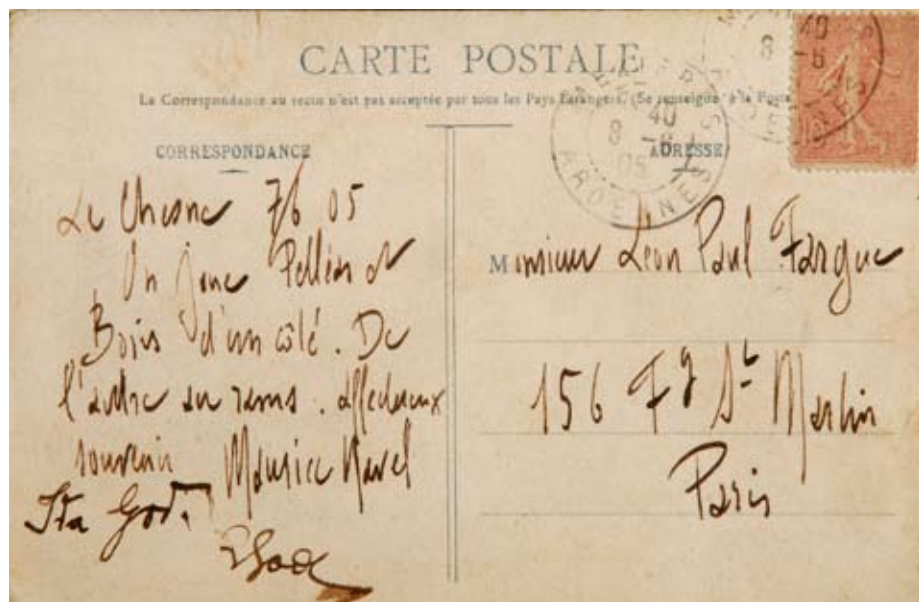 CARTE POSTALE
La Correspondance au recto n'est pas acceptée par tous les Pays Étrangers. (Se renseigner à la Poste
CORRESPONDANCE
ADRESSE
Le Chesne 7/6 05
On joue Pelléas et
Boris d'un côté. De
l'autre on rame. affectueux
souvenir Maurice Ravel
Ida God.
Monsieur Léon Paul Fargue
156 Fg St Martin
Paris
40
8 -6
05
ARDENNES
40
8 -6